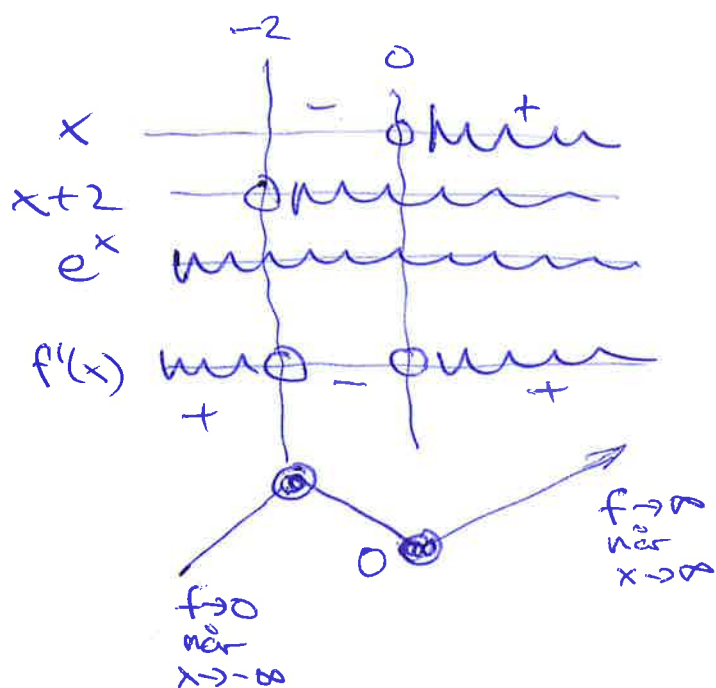 -2
0
x - +
x+2
e^x
f'(x)
+ - +
0
f→0
når
x→-∞
f→∞
når
x→∞